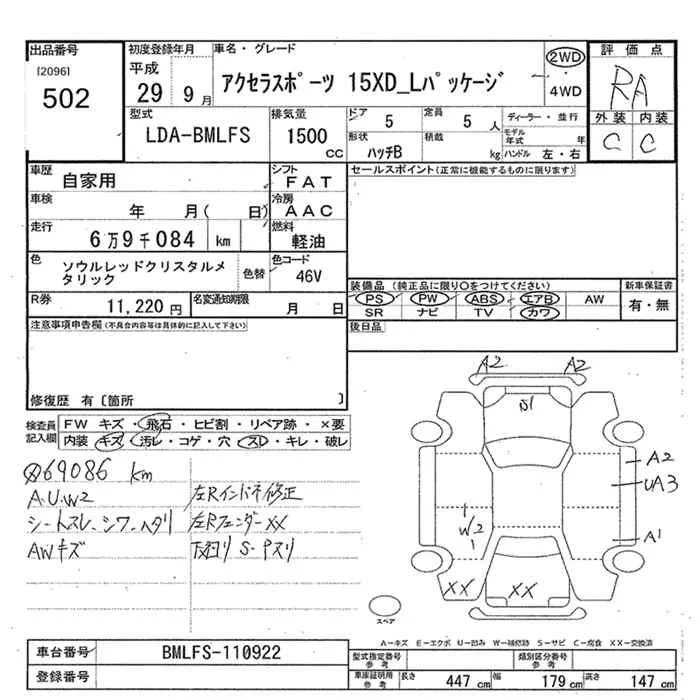 出品番号 初度登録年月 車名・グレード 評価点
[2096] 平成 アクセラスポーツ 15XD_Lパッケージ 2WD RA
502 29 9月 4WD
型式 排気量 ドア 定員 ディーラー・並行 外装 内装
LDA-BMLFS 1500 CC 5 5 人 モデル年式 年 C C
形状 積載
ハッチB kg ハンドル 左・右
車歴 自家用 シフト FAT セールスポイント(正常に機能するものに限ります)
車検 年 月( 日) 冷房 AAC
走行 6万9千084 km 燃料 軽油
色 ソウルレッドクリスタルメタリック 色替 色コード 46V
装備品 (純正品に限り○をつけてください) 新車保証書
R券 11,220円 名変通知期限 月 日 PS PW ABS エアB AW 有・無
SR ナビ TV カワ
注意事項申告欄(不具合内容等は具体的に記入して下さい) 後日品
修復歴 有〔箇所 〕
検査員記入欄 FW キズ・飛石・ヒビ割・リペア跡・×要
内装 キズ・汚レ・コゲ・穴・スレ・キレ・破レ
69086 km
A.U.W2 左Rインドネ修正
シートスレ、シワ、ヘタリ 左RフェンダーXX
AWキズ 下回り S・Pスリ
A2 A2
A2
UA3
W2 A1
XX XX
スペア
A-キズ E-エクボ U-凹み W-補修跡 S-サビ C-腐食 XX-交換済
車台番号 BMLFS-110922 型式指定番号 参考 類別区分番号 参考
登録番号 車庫証明用 参考 長さ 447cm 幅 179cm 高さ 147cm